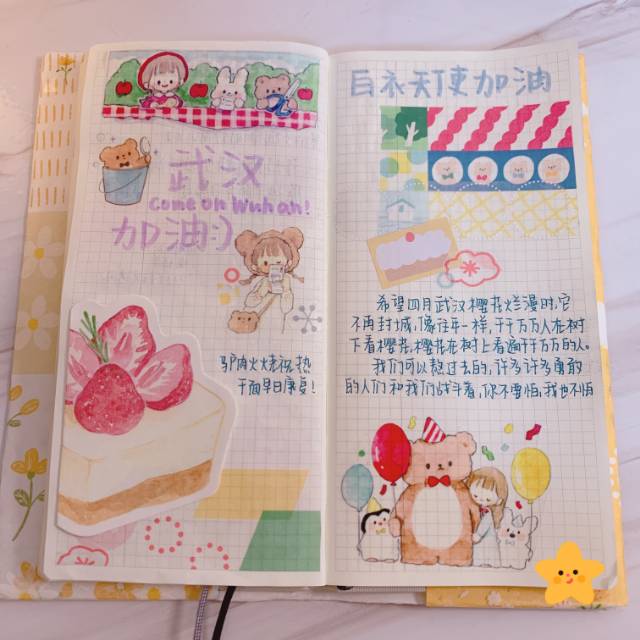 武汉
Come on Wuhan!
加油:)
驴肉火烧祝热
干面早日康复!
白衣天使加油
希望四月武汉樱花烂漫时,它
不再封城,像往年一样,千千万万人在树
下看樱花,樱花在树上看遍千千万万的人。
我们可以熬过去的,许多许多勇敢
的人们和我们战斗着,你不要怕,我也不怕